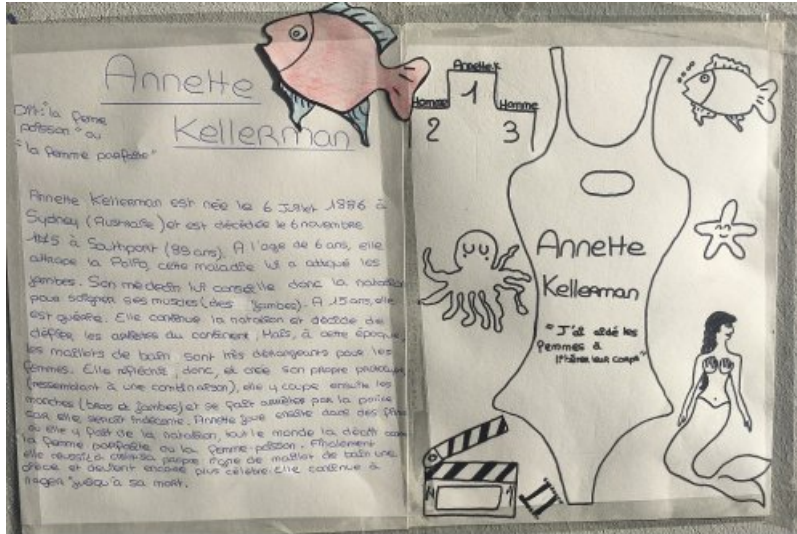 Annette
Kellerman
Dit: "la femme
poisson" ou
"la femme parfaite"
Annette Kellerman est née le 6 Juillet 1886 à
Sydney (Australie) et est décédée le 6 novembre
1975 à Southport (89 ans). A l'age de 6 ans, elle
attrape la Polio, cette maladie lui a attaqué les
jambes. Son médecin lui conseille donc la natation
pour soigner ses muscles (des jambes). A 15 ans, elle
est guérie. Elle continue la natation et décide de
défier les athlètes du continent. Mais, à cette époque,
les maillots de bain sont très dérangeants pour les
femmes. Elle réfléchie, donc, et crée son propre prototype
(ressemblant à une combinaison), elle y coupe ensuite les
manches (bras et jambes) et se fait arrêter par la police
car elle serait indécente. Annette joue ensuite dans des films
où elle y fait de la natation, tout le monde la décrit comme
la femme parfaite ou la femme-poisson. Finalement
elle réussit à créer sa propre ligne de maillot de bain une
pièce et devient encore plus célèbre. Elle continue à
nager jusqu'à sa mort.
Annette K
Homme
1
Homme
2
3
Annette
Kellerman
"J'ai aidé les
femmes à
libérer leur corps"